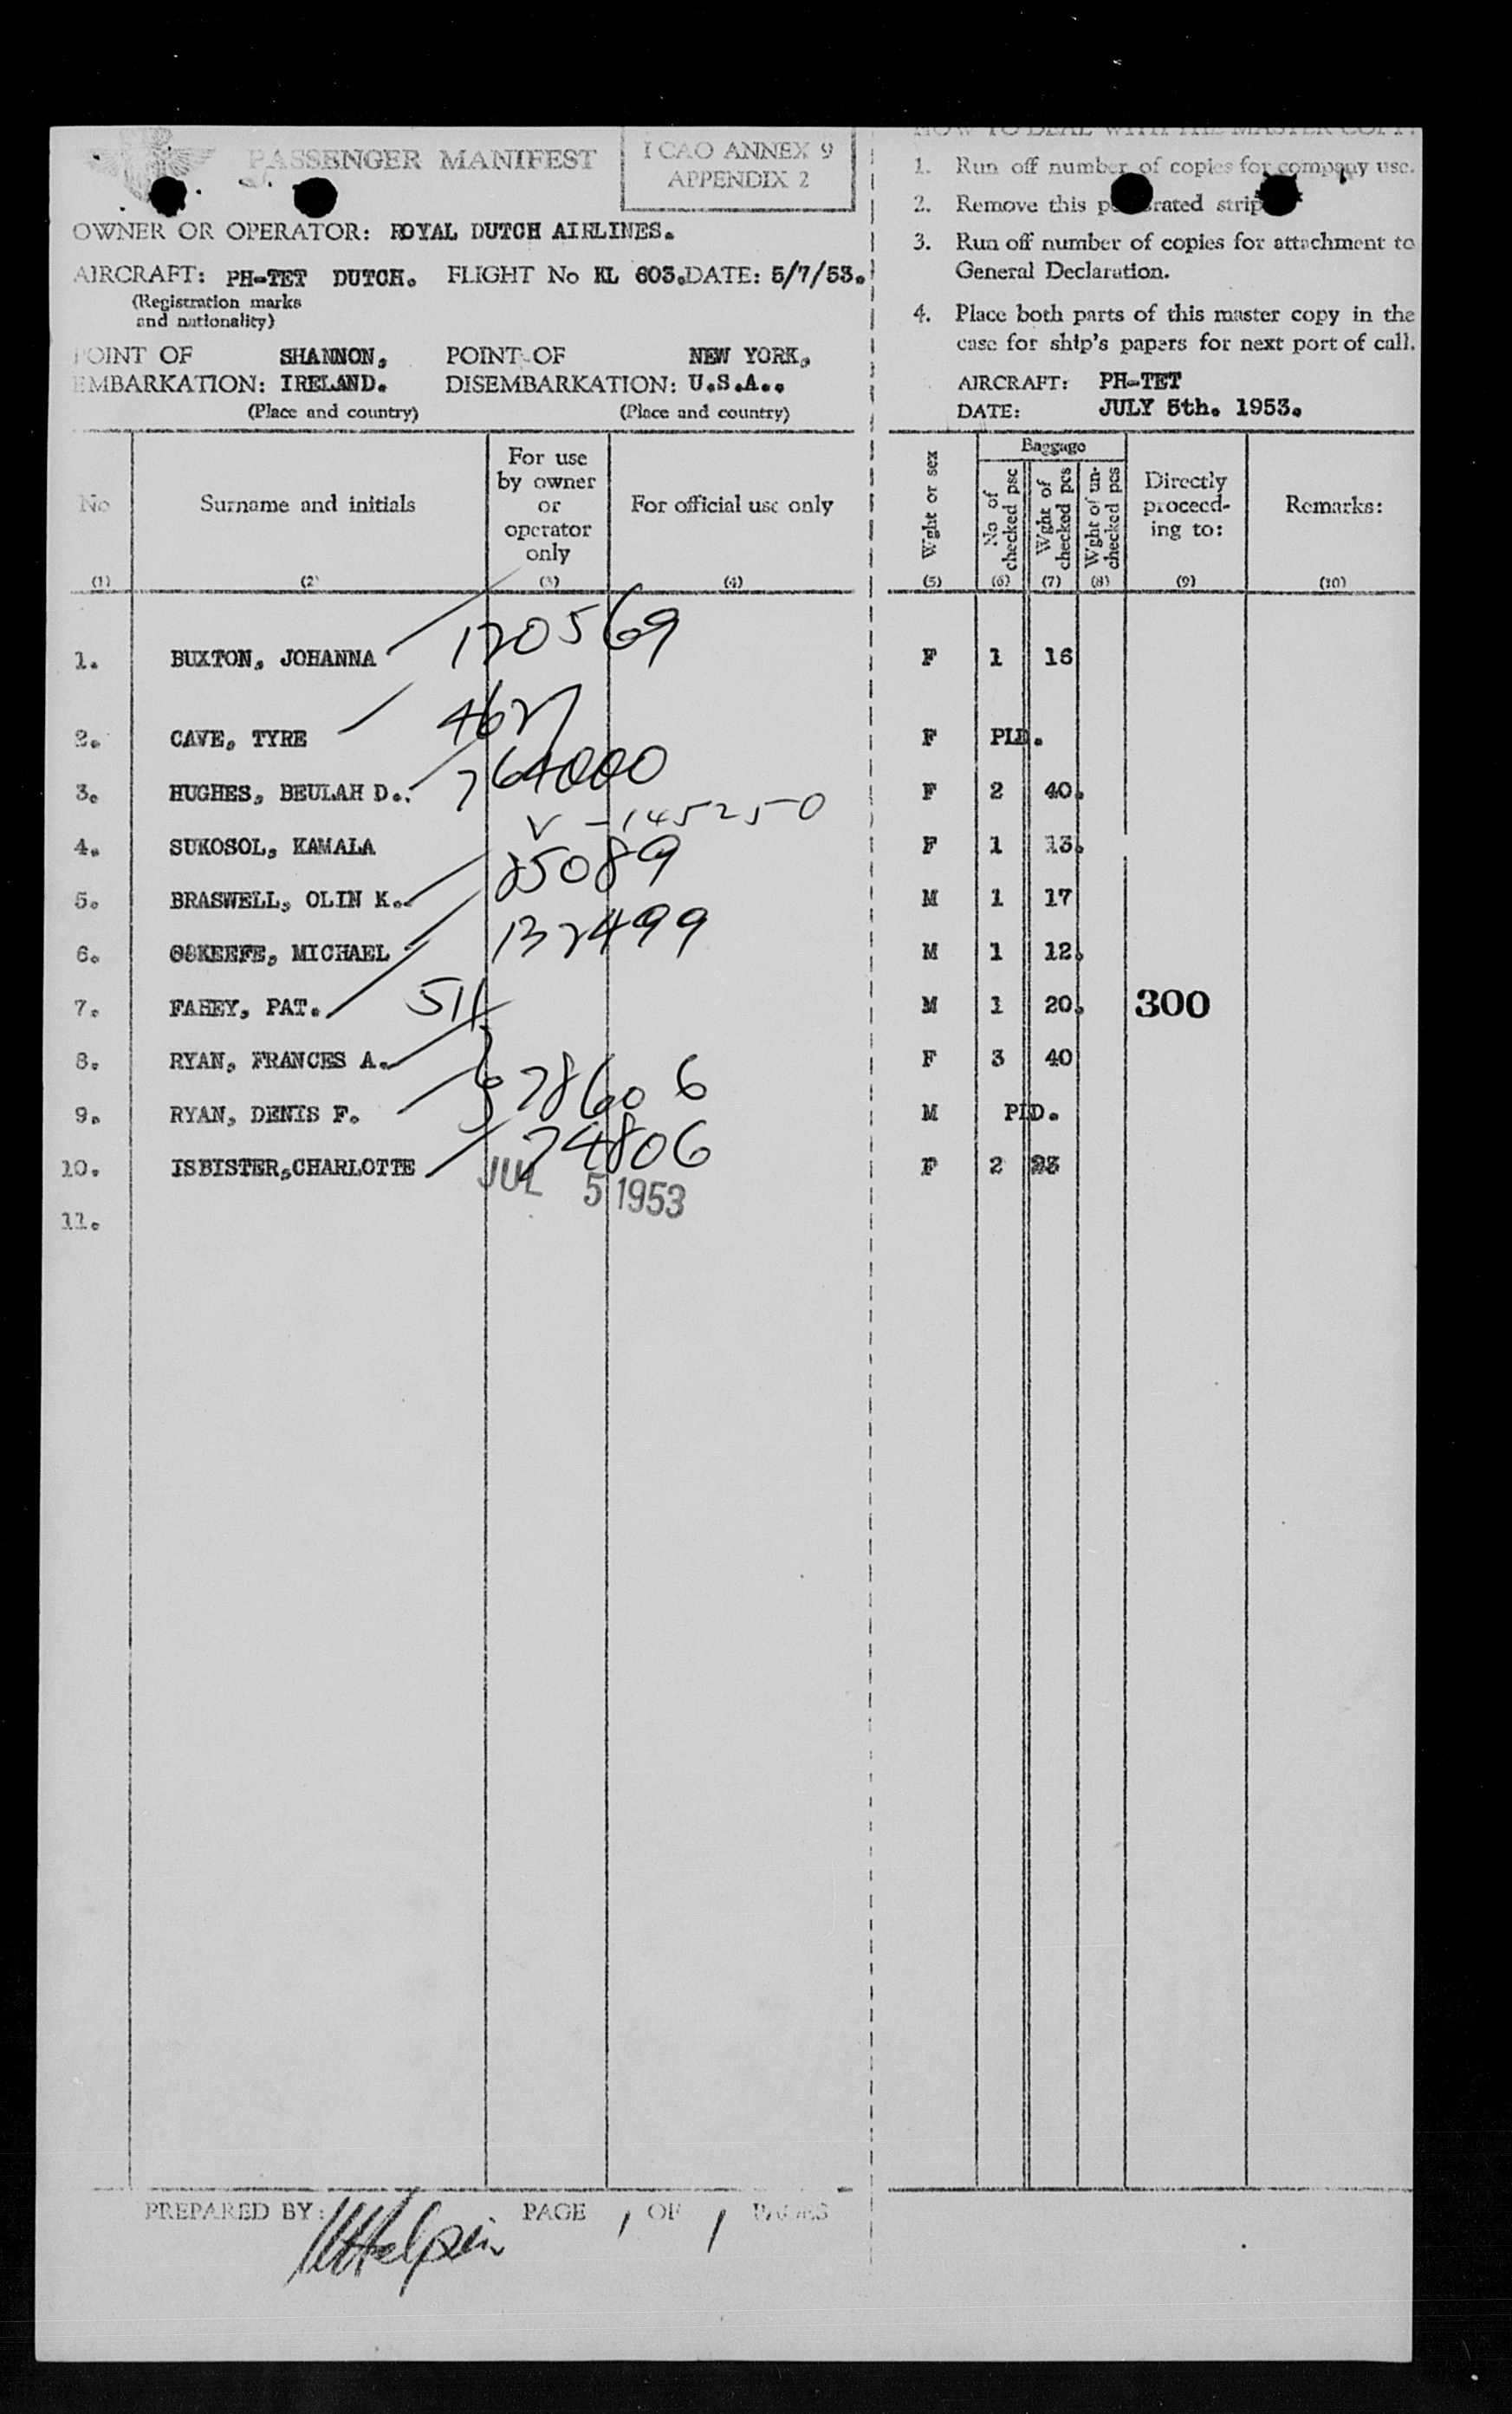 PASSENGER MANIFEST
ICAO ANNEX 9
APPENDIX 2
OWNER OR OPERATOR: ROYAL DUTCH AIRLINES.
AIRCRAFT: PH-TET DUTCH. FLIGHT No KL 603. DATE: 5/7/53.
(Registration marks
and nationality)
POINT OF SHANNON, POINT OF NEW YORK,
EMBARKATION: IRELAND. DISEMBARKATION: U.S.A..
(Place and country) (Place and country)
HOW TO DEAL WITH THE MASTER COPY:
1. Run off number of copies for company use.
2. Remove this perforated strip
3. Run off number of copies for attachment to
General Declaration.
4. Place both parts of this master copy in the
case for ship's papers for next port of call.
AIRCRAFT: PH-TET
DATE: JULY 5th. 1953.
No Surname and initials For use by owner or operator only For official use only Wght or sex Baggage No of checked psc Wght of checked pcs Wght of un-checked pcs Directly proceed-ing to: Remarks:
(1) (2) (3) (4) (5) (6) (7) (8) (9) (10)
1. BUXTON, JOHANNA 120569 F 1 16
2. CAVE, TYRE 4627 F PLD.
3. HUGHES, BEULAH D.. 764000 F 2 40.
4. SUKOSOL, KAMALA V-145250 F 1 13.
5. BRASWELL, OLIN K.. 25089 M 1 17
6. O'KEEFE, MICHAEL 132499 M 1 12.
7. FAHEY, PAT. 511 M 1 20. 300
8. RYAN, FRANCES A. F 3 40
9. RYAN, DENIS F. 278606 M PLD.
10. ISBISTER,CHARLOTTE 74806 F 2 23
JUL 5 1953
11.
PREPARED BY: PAGE 1 OF 1 PAGES